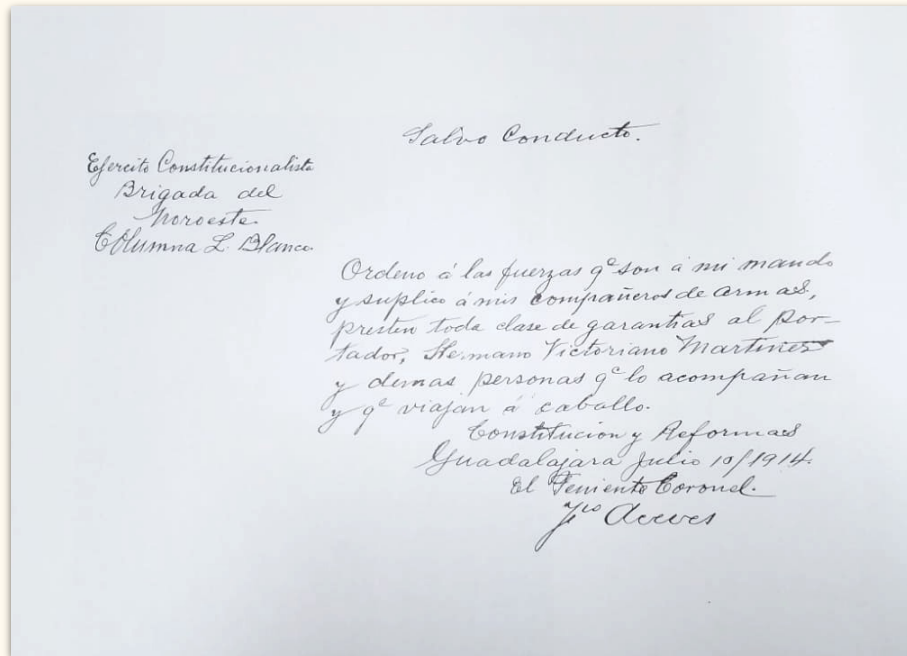 Salvo Conducto.
Ejercito Constitucionalista
Brigada del
Noroeste.
Columna L. Blanco.
Ordeno á las fuerzas qᵉ son á mi mando
y suplico á mis compañeros de armas,
presten toda clase de garantias al por-
tador, Hermano Victoriano Martinez
y demas personas qᵉ lo acompañan
y qᵉ viajan á caballo.
Constitucion y Reformas
Guadalajara Julio 10/1914.
El Teniente Coronel.
Aceves